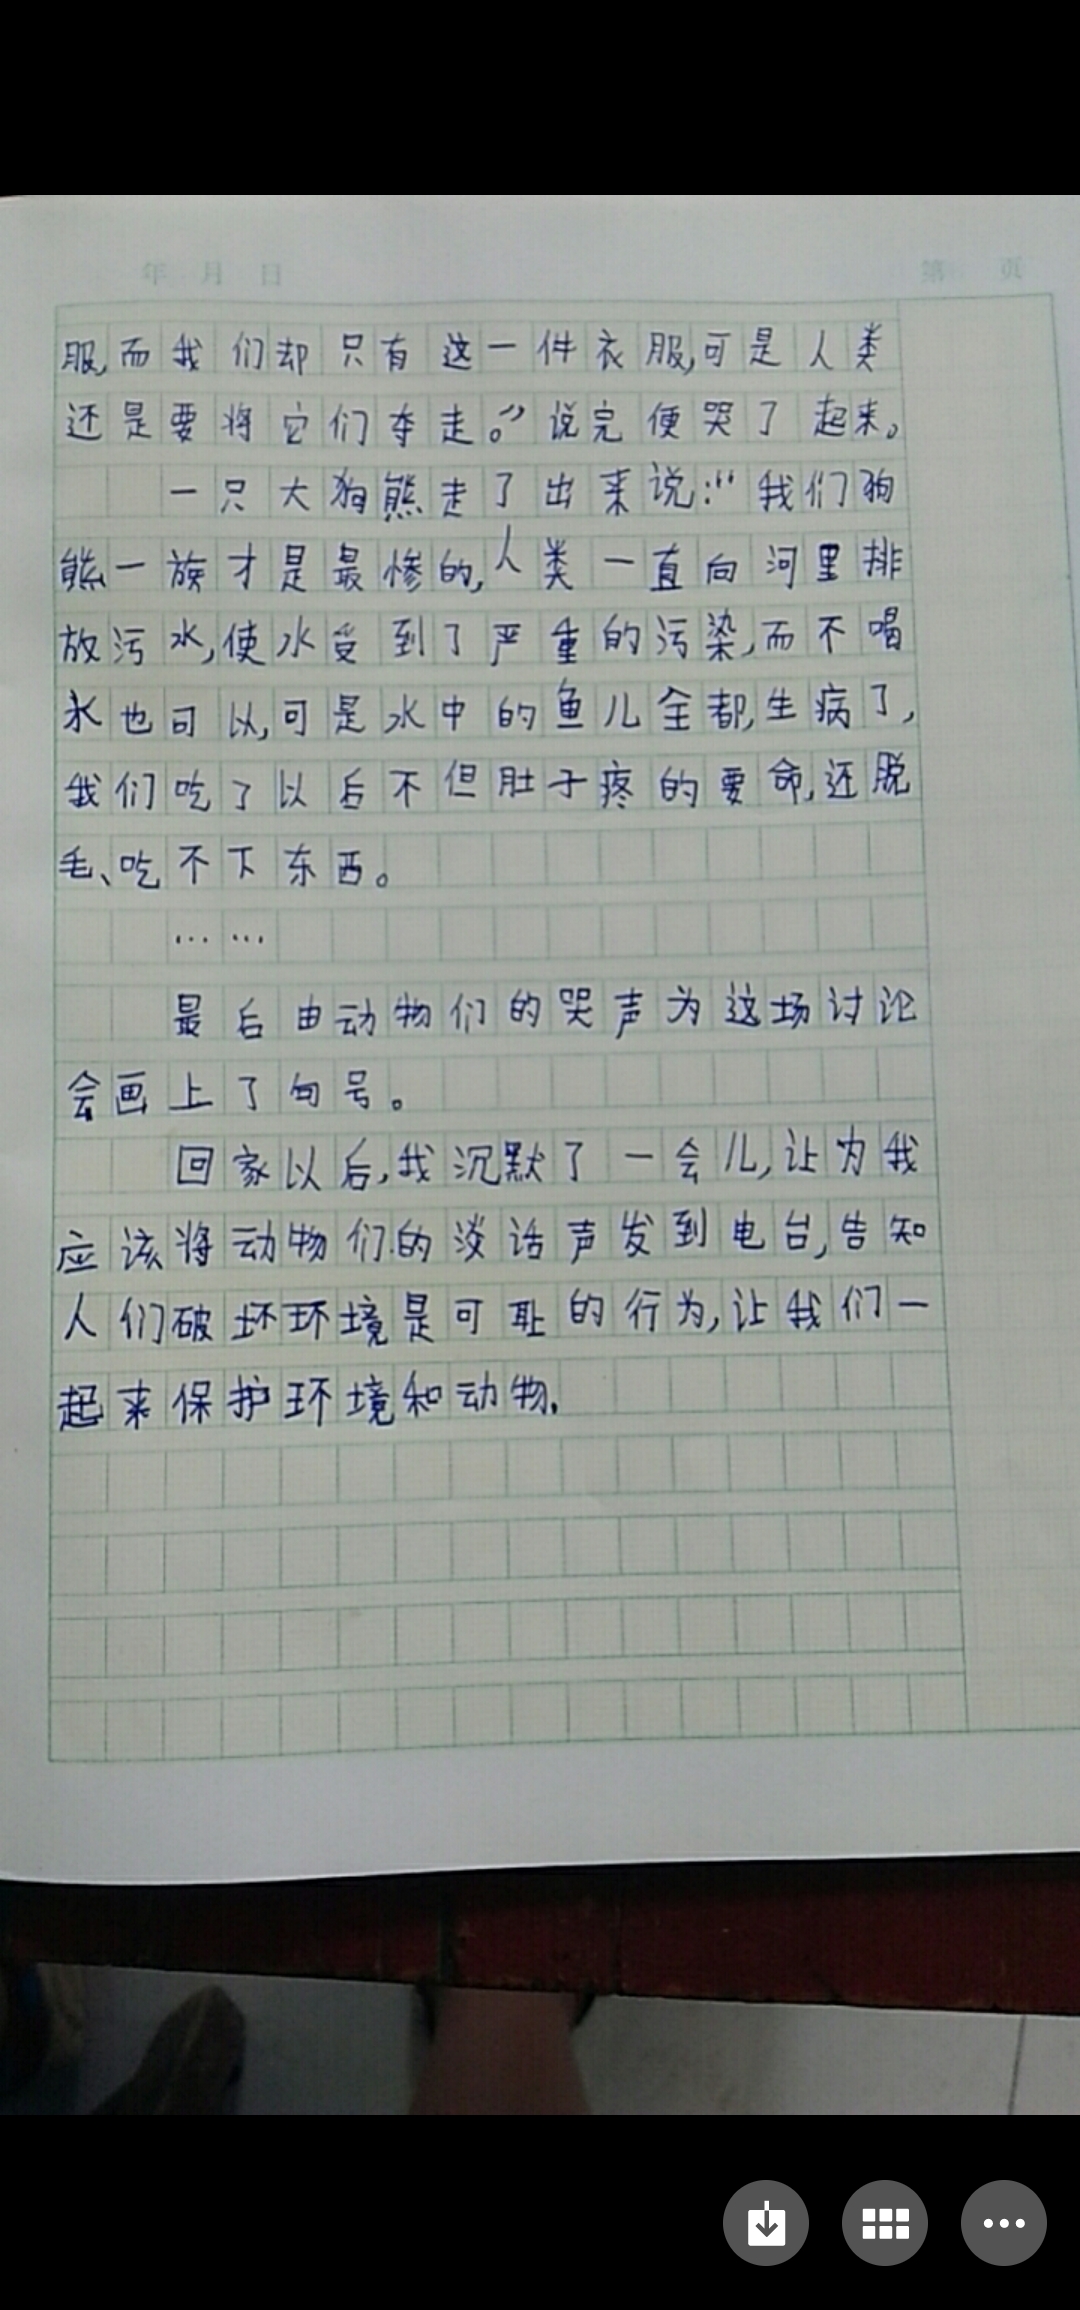 年 月 日 第 页
服,而我们却只有这一件衣服,可是人类
还是要将它们夺走。”说完便哭了起来。
一只大狗熊走了出来说:“我们狗
熊一族才是最惨的,人类一直向河里排
放污水,使水受到了严重的污染,而不喝
水也可以,可是水中的鱼儿全都生病了,
我们吃了以后不但肚子疼的要命,还脱
毛、吃不下东西。
……
最后由动物们的哭声为这场讨论
会画上了句号。
回家以后,我沉默了一会儿,让为我
应该将动物们的淡话声发到电台,告知
人们破坏环境是可耻的行为,让我们一
起来保护环境和动物.